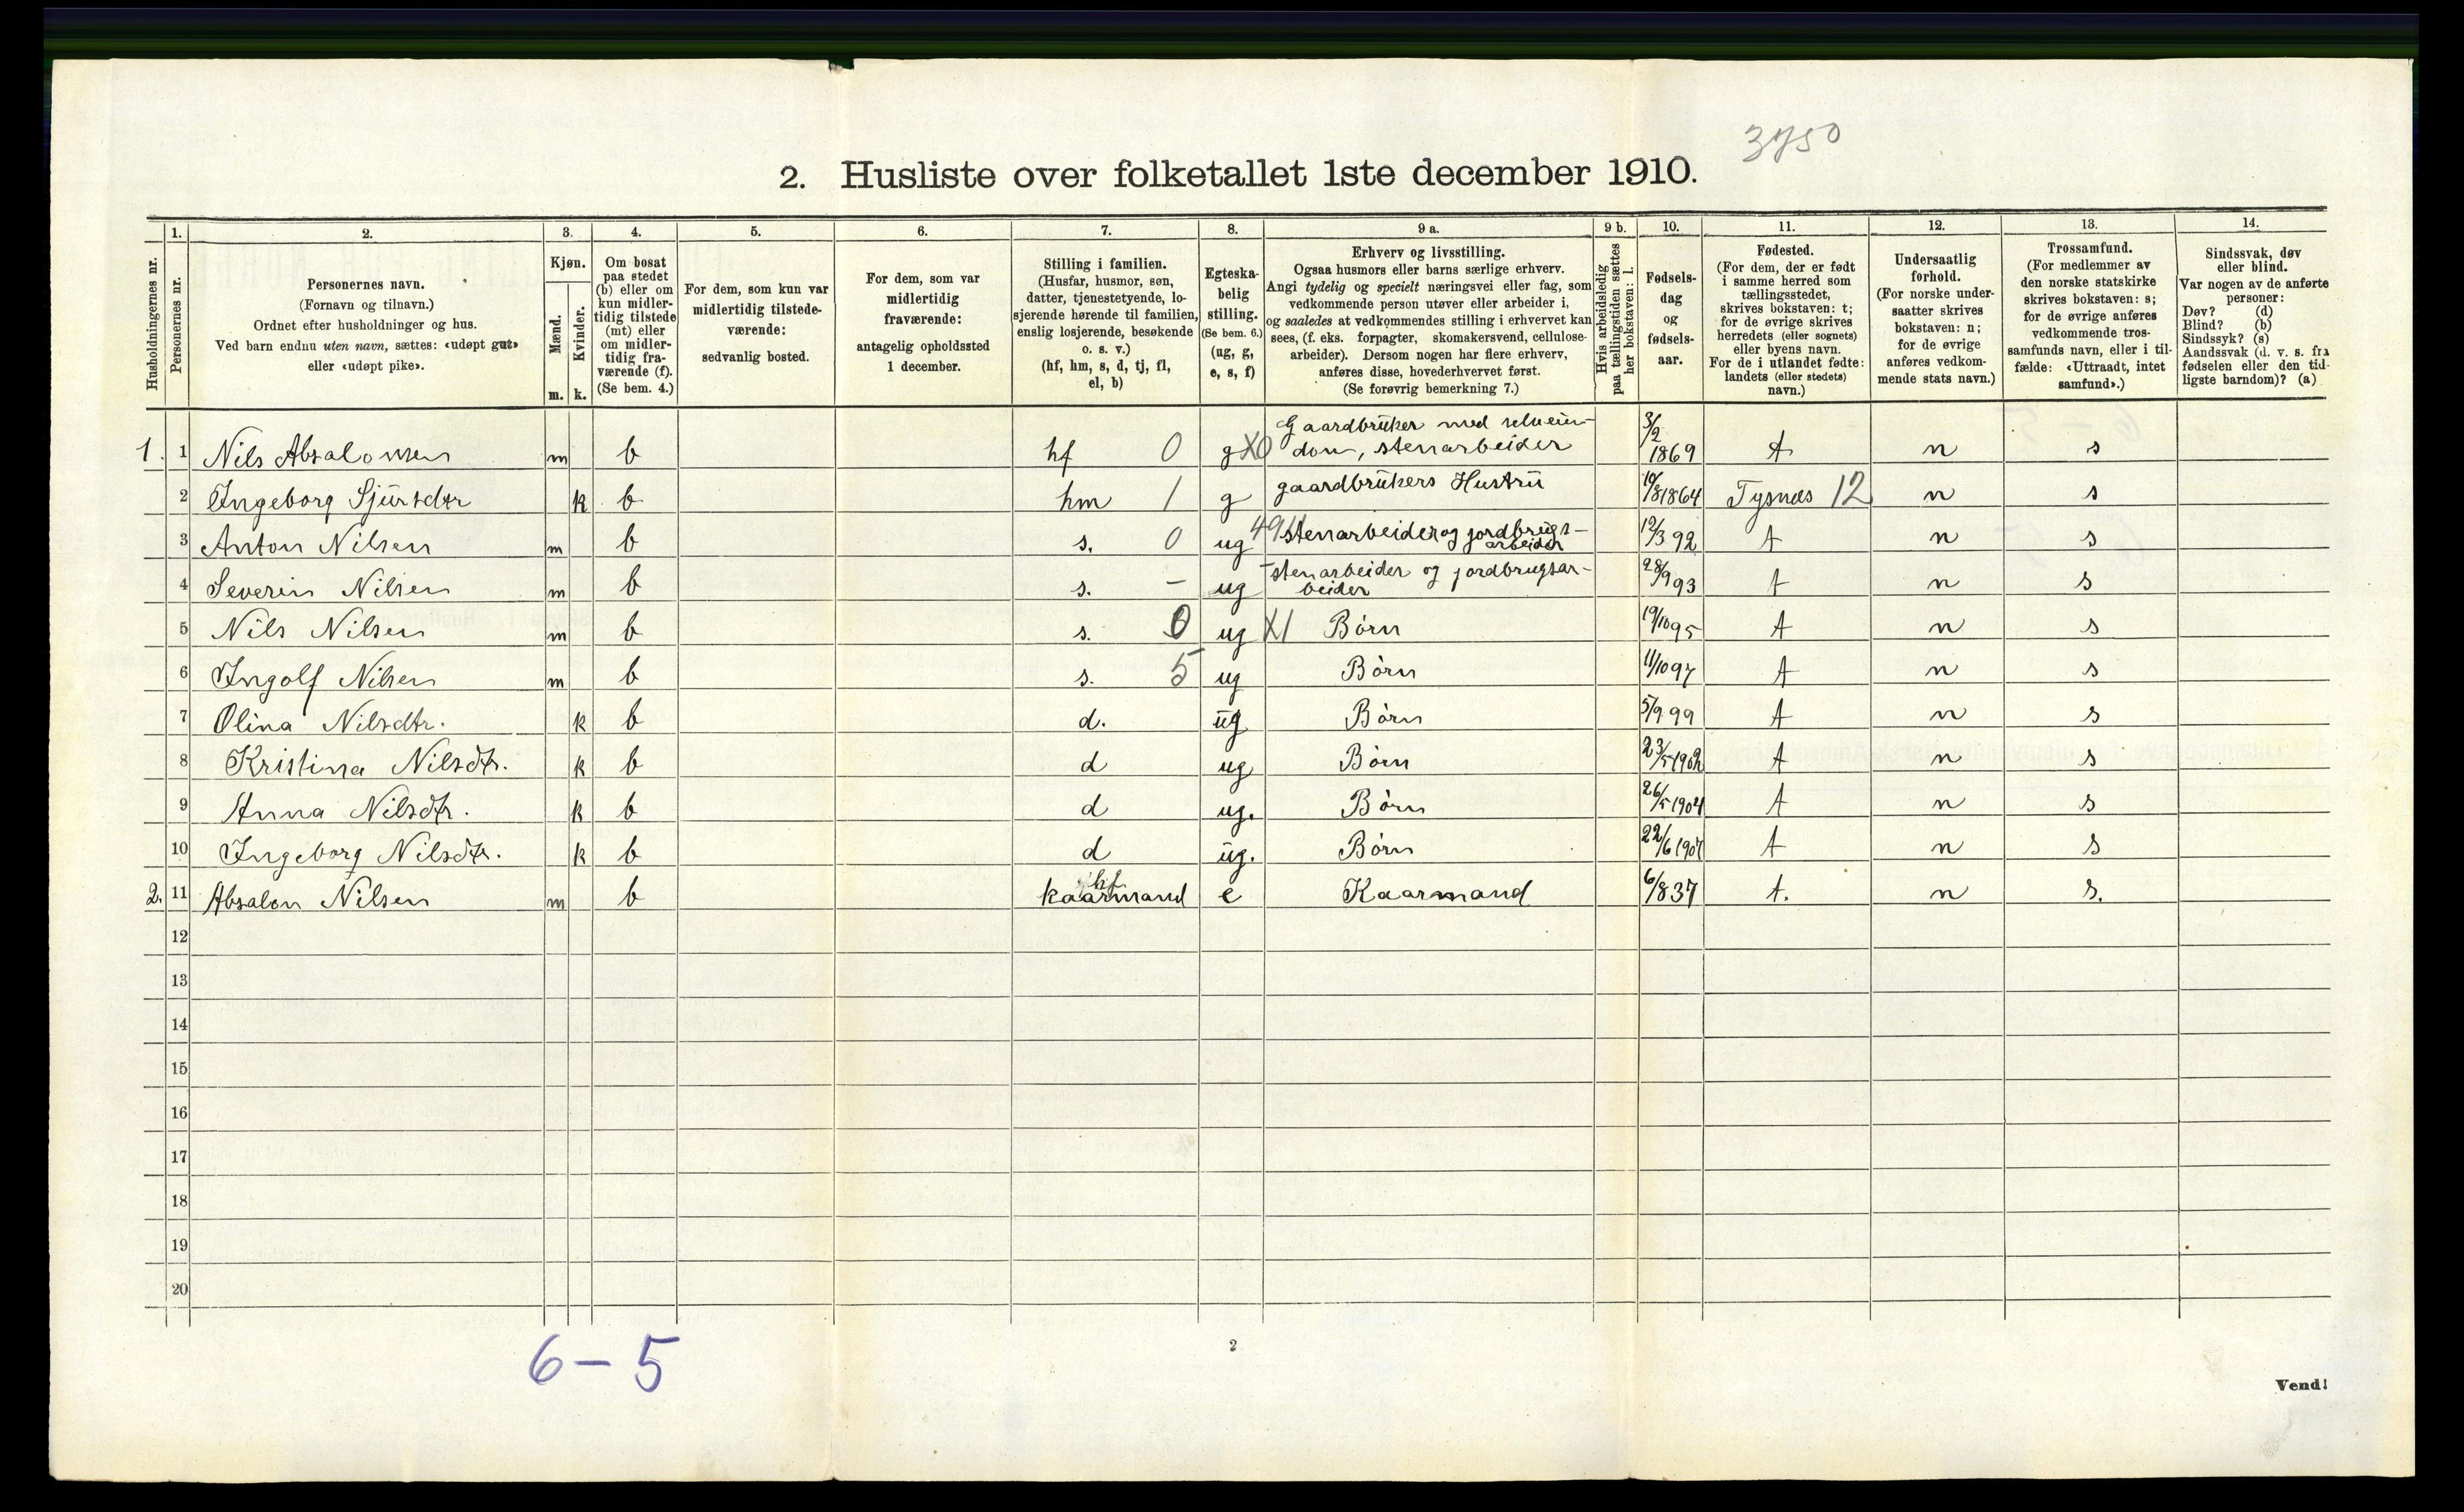 3750
2. Husliste over folketallet 1ste december 1910.
Husholdningernes nr.
1. Personernes nr.
2. Personernes navn.
(Fornavn og tilnavn.)
Ordnet efter husholdninger og hus.
Ved barn endnu uten navn, sættes: «udøpt gut»
eller «udøpt pike».
3. Kjøn.
Mænd. m.
Kvinder. k.
4. Om bosat
paa stedet
(b) eller om
kun midler-
tidig tilstede
(mt) eller
om midler-
tidig fra-
værende (f).
(Se bem. 4.)
5. For dem, som kun var
midlertidig tilstede-
værende:
sedvanlig bosted.
6. For dem, som var
midlertidig
fraværende:
antagelig opholdssted
1 december.
7. Stilling i familien.
(Husfar, husmor, søn,
datter, tjenestetyende, lo-
sjerende hørende til familien,
enslig losjerende, besøkende
o. s. v.)
(hf, hm, s, d, tj, fl,
el, b)
8. Egteska-
belig
stilling.
(Se bem. 6.)
(ug, g,
e, s, f)
9 a. Erhverv og livsstilling.
Ogsaa husmors eller barns særlige erhverv.
Angi tydelig og specielt næringsvei eller fag, som
vedkommende person utøver eller arbeider i,
og saaledes at vedkommendes stilling i erhvervet kan
sees, (f. eks. forpagter, skomakersvend, cellulose-
arbeider). Dersom nogen har flere erhverv,
anføres disse, hovederhvervet først.
(Se forøvrig bemerkning 7.)
9 b. Hvis arbeidsledig
paa tællingstiden sættes
her bokstaven: l.
10. Fødsels-
dag
og
fødsels-
aar.
11. Fødested.
(For dem, der er født
i samme herred som
tællingsstedet,
skrives bokstaven: t;
for de øvrige skrives
herredets (eller sognets)
eller byens navn.
For de i utlandet fødte:
landets (eller stedets)
navn.)
12. Undersaatlig
forhold.
(For norske under-
saatter skrives
bokstaven: n;
for de øvrige
anføres vedkom-
mende stats navn.)
13. Trossamfund.
(For medlemmer av
den norske statskirke
skrives bokstaven: s;
for de øvrige anføres
vedkommende tros-
samfunds navn, eller i til-
fælde: «Uttraadt, intet
samfund».)
14. Sindssvak, døv
eller blind.
Var nogen av de anførte
personer:
Døv? (d)
Blind? (b)
Sindssyk? (s)
Aandssvak (d. v. s. fra
fødselen eller den tid-
ligste barndom)? (a)
1. 1 Nils Absalomsen m b hf 0 g X0 Gaardbruker med selveien-
dom, stenarbeider 3/2 1869 t n s
2 Ingeborg Sjursdtr k b hm 1 g gaardbrukers Hustru 19/8 1864 Tysnes 12 n s
3 Anton Nilsen m b s. 0 ug stenarbeider og jordbrugs-
arbeider 12/3 92 t n s
4 Severin Nilsen m b s. - ug stenarbeider og jordbrugsar-
beider 28/9 93 t n s
5 Nils Nilsen m b s. 0 ug X1 Børn 19/10 95 t n s
6 Ingolf Nilsen m b s. 5 ug Børn 11/10 97 t n s
7 Olina Nilsdtr. k b d. ug Børn 5/9 99 t n s
8 Kristina Nilsdtr. k b d ug Børn 23/5 1902 t n s
9 Anna Nilsdtr. k b d ug. Børn 26/5 1904 t n s
10 Ingeborg Nilsdtr. k b d ug. Børn 22/6 1907 t n s
2. 11 Absalon Nilsen m b hf kaarmand e Kaarmand 6/8 37 t. n s.
12
13
14
15
16
17
18
19
20
6 - 5
2
Vend!